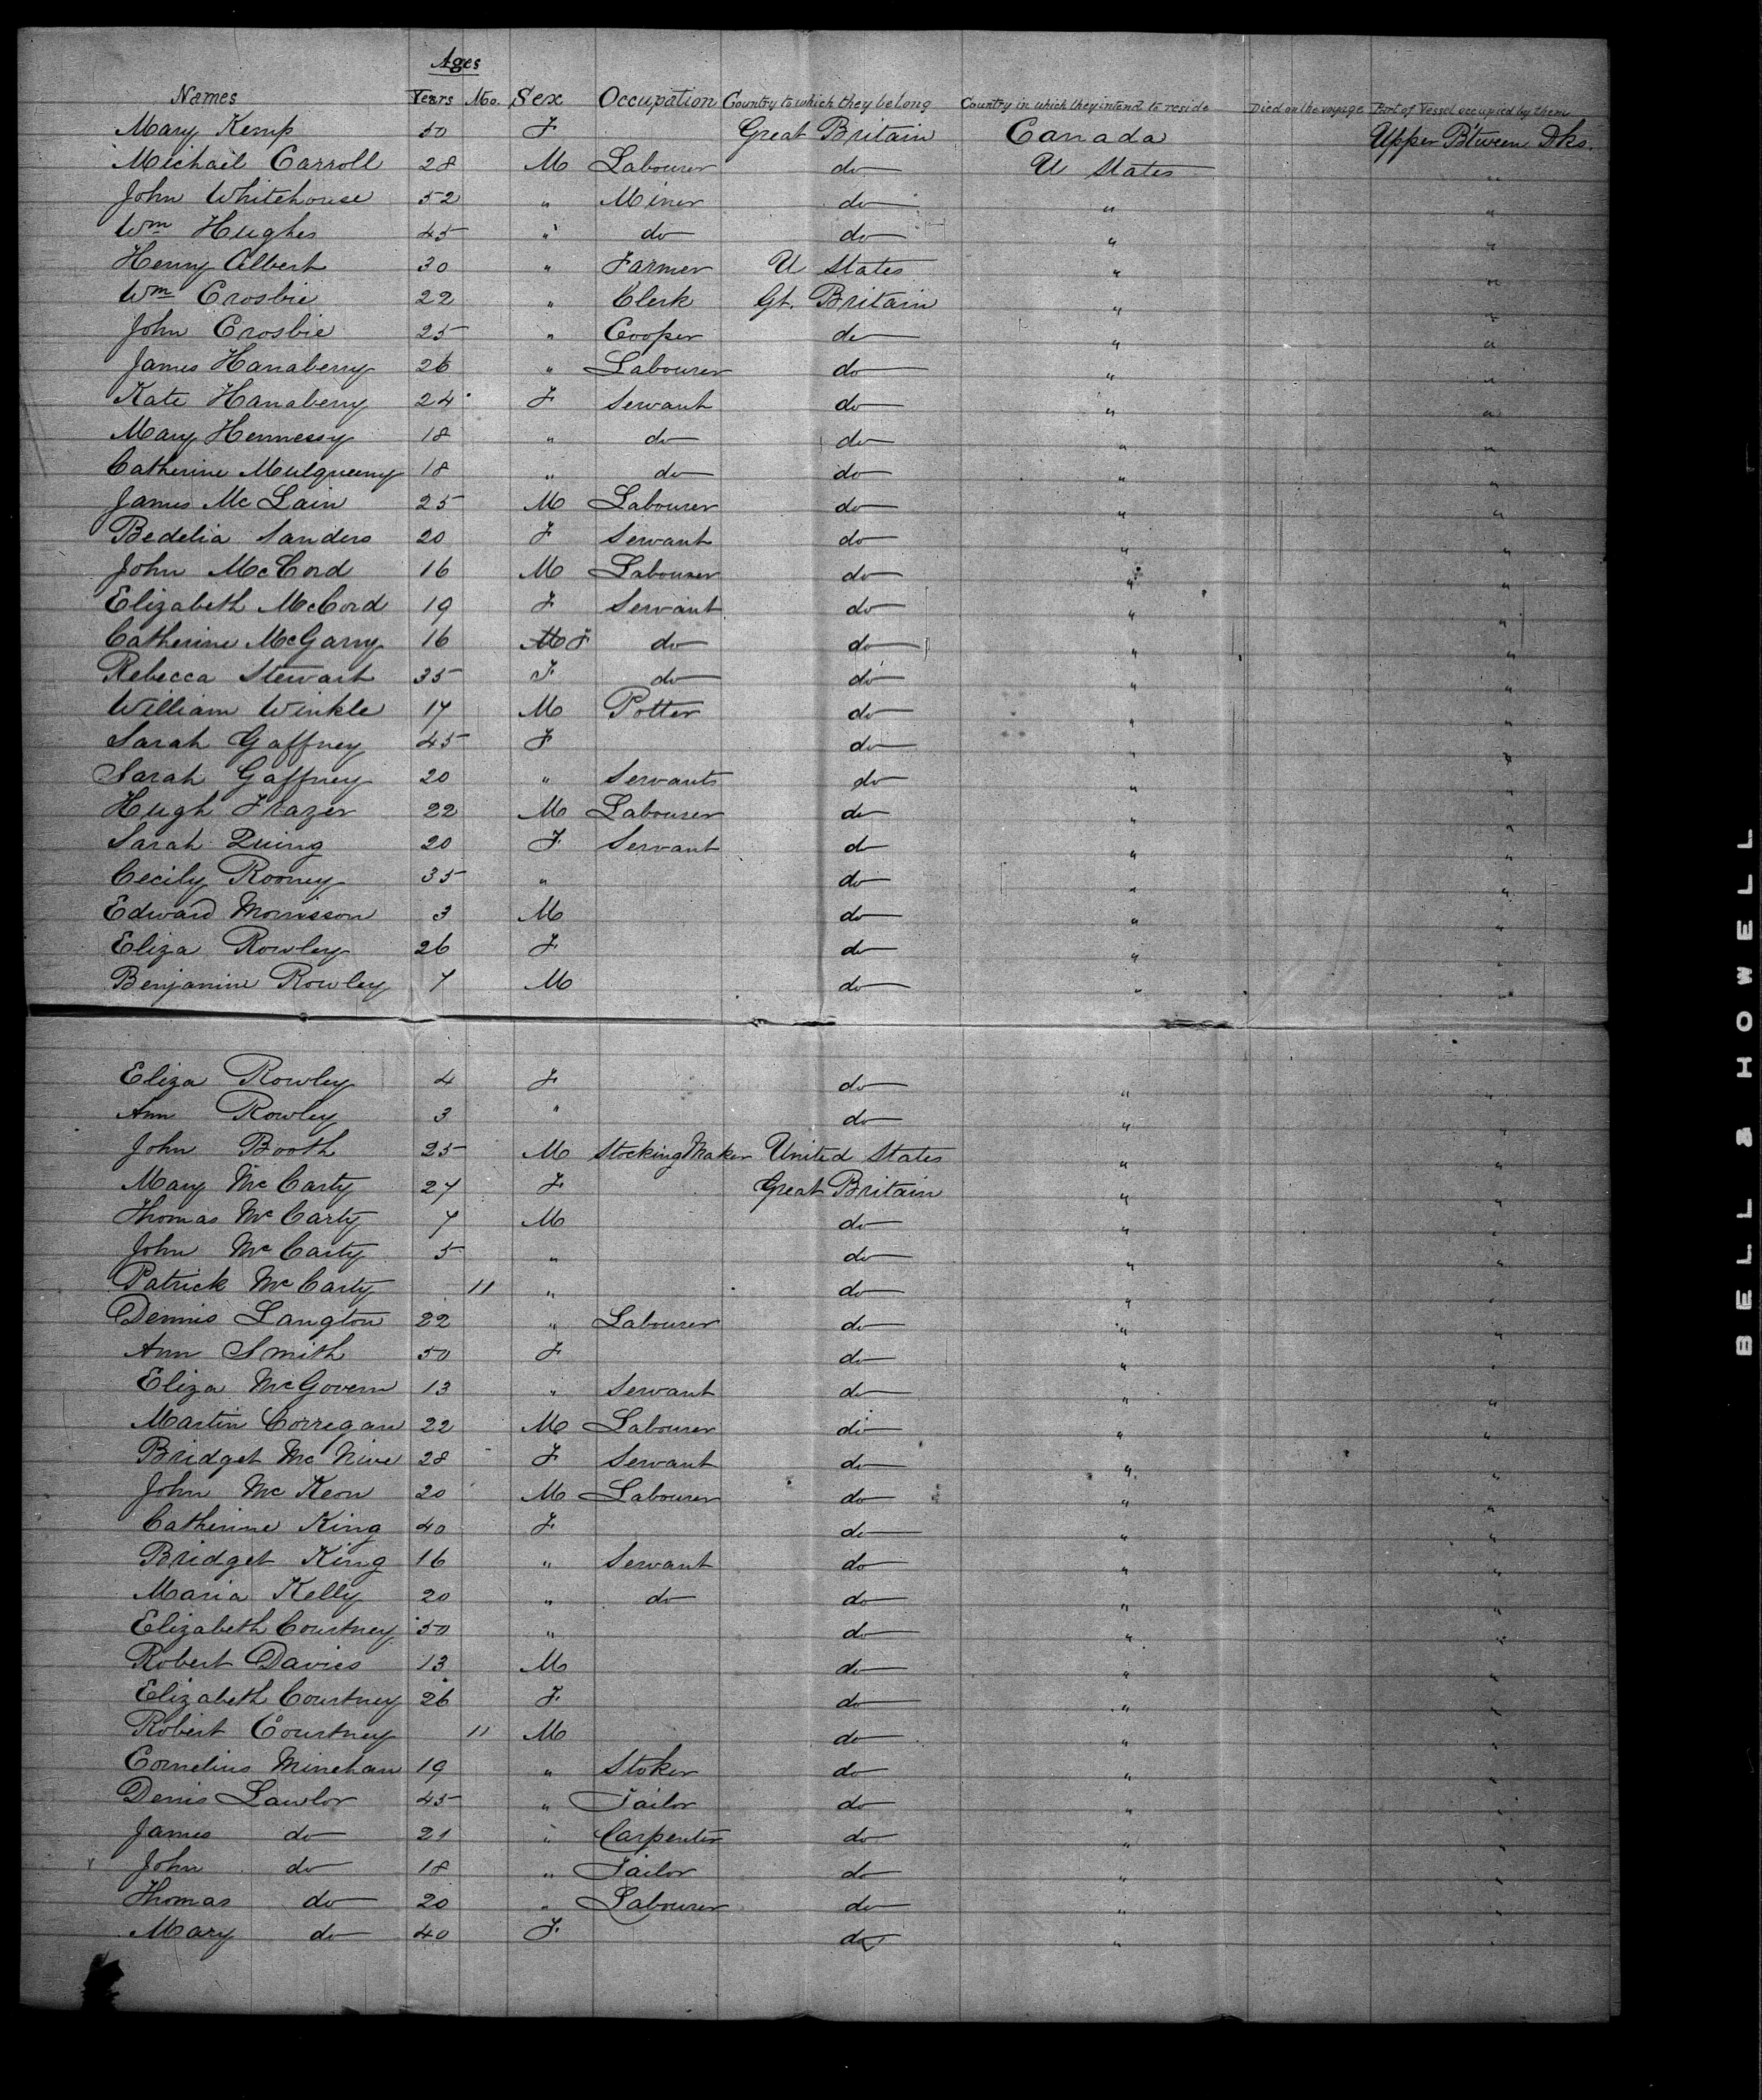 Ages
Names Years Mo. Sex Occupation Country to which they belong Country in which they intend to reside Died on the voyage Part of Vessel occupied by them
Mary Kemp 50 F Great Britain Canada Upper B'tween Dks.
Michail Carroll 28 M Labourer do U States "
John Whitehouse 52 " Miner do " "
Wm Hughes 45 " do do " "
Henry Albert 30 " Farmer U States " "
Wm Crosbie 22 " Clerk Gt. Britain " "
John Crosbie 25 " Cooper do " "
James Hanaberry 26 " Labourer do " "
Kate Hanaberry 24 F Servant do " "
Mary Hennessy 18 " do do " "
Catherine Mulqueeny 18 " do do " "
James Mc Lain 25 M Labourer do " "
Bedelia Sanders 20 F Servant do " "
John McCord 16 M Labourer do " "
Elizabeth McCord 19 F Servant do " "
Catherine McGarry 16 M F do do " "
Rebecca Stewart 35 F do do " "
William Winkle 17 M Potter do " "
Sarah Gaffney 45 F do " "
Sarah Gaffney 20 " Servants do " "
Hugh Frazer 22 M Labourer do " "
Sarah Quing 20 F Servant do " "
Cecily Rooney 35 " do " "
Edward Morrisson 3 M do " "
Eliza Rowley 26 F do " "
Benjamine Rowley 7 M do " "
Eliza Rowley 4 F do " "
Ann Rowley 3 " do " "
John Booth 25 M Stocking Maker United States " "
Mary Mc Carty 27 F Great Britain " "
Thomas Mc Carty 7 M do " "
John Mc Carty 5 " do " "
Patrick Mc Carty 11 " do " "
Dennis Langton 22 " Labourer do " "
Ann Smith 50 F do " "
Eliza McGovern 13 " Servant do " "
Martin Corregan 22 M Labourer do " "
Bridget Mc Nive 28 F Servant do " "
John Mc Keon 20 M Labourer do " "
Catherine King 40 F do " "
Bridget King 16 " Servant do " "
Maria Kelly 20 " do do " "
Elizabeth Courtney 50 " do " "
Robert Davies 13 M do " "
Elizabeth Courtney 26 F do " "
Robert Courtney 11 M do " "
Cornelius Minehan 19 " Stoker do " "
Denis Lawlor 45 " Tailor do " "
James do 21 " Carpenter do " "
John do 18 " Tailor do " "
Thomas do 20 " Labourer do " "
Mary do 40 F do " "
BELL & HOWELL